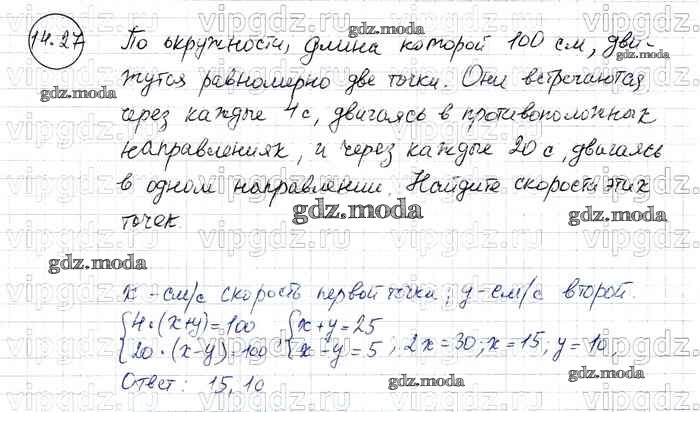 14.27
По окружности, длина которой 100 см, дви-
жутся равномерно две точки. Они встречаются
через каждые 4 с, двигаясь в противоположных
направлениях, и через каждые 20 с, двигаясь
в одном направлении. Найдите скорости этих
точек.
x - см/с скорость первой точки; y - см/с второй.
{4·(x+y)=100 {x+y=25
{20·(x-y)=100 {x-y=5 ; 2x=30; x=15, y=10,
Ответ: 15, 10
gdz.moda
vipgdz.ru